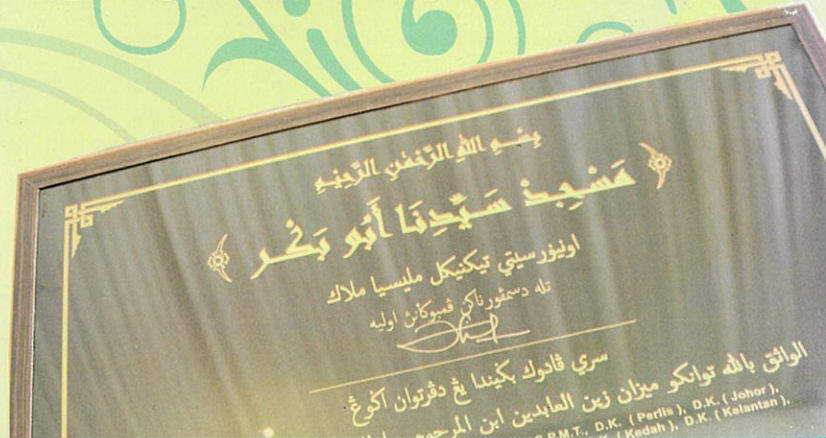 بِسْمِ اللهِ الرَّحْمٰنِ الرَّحِيْمِ
مَسْجِدْ سَيِّدِنَا أَبُو بَكَر
اونيۏرسيتي تيكنيكل مليسيا ملاك
تله دسمڤورناكن ڤمبوكاءن اوليه
سري ڤادوك بݢيندا يڠ دڤرتوان اݢوڠ
الواثق بالله توانكو ميزان زين العابدين ابن المرحوم
P.M.T., D.K. ( Perlis ), D.K. ( Johor ),
( Kedah ), D.K. ( Kelantan ),